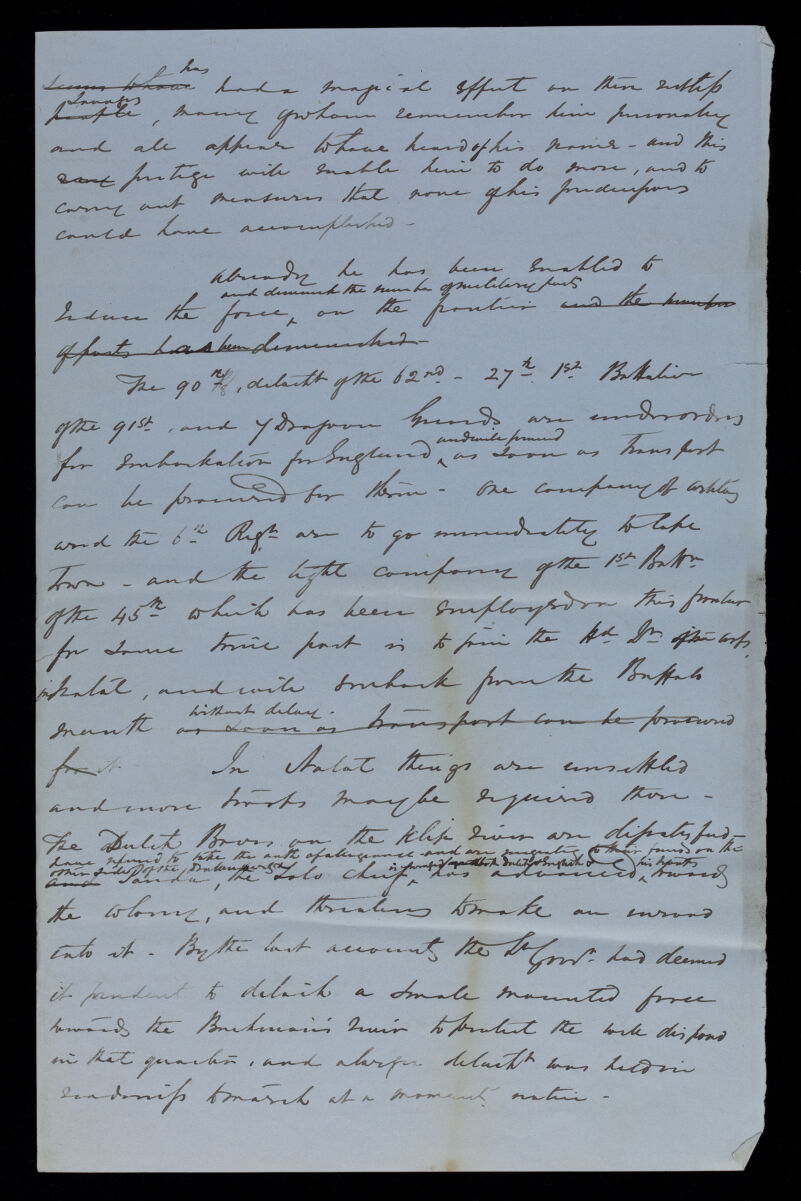 has
seems to have had a magical effect on these restless
Savages
people, many of whom remember him personally
and all appear to have heard of his name - and this
prestige will enable him to do more, and to
carry out measures that none of his predecessors
could have accomplished -
Already he has been enabled to
and diminish the number of military posts
reduce the force, on the frontier and the number
of posts has been diminished -
The 90th, detacht of the 62nd - 27th 1st Battalion
of the 91st, and 7 Dragoon Guards are under orders
and will proceed
for embarkation for England, as soon as transport
can be procured for them - One company of Artily
and the 6th Regt are to go immediately to Cape
Town - and the light company of the 1st Battn
of the 45th which has been employed on this frontier
for some time past is to join the Hd Qrs of the Corps,
in Natal, and will embark from the Buffalo
without delay -
mouth as soon as transport can be procured
for it In Natal things are unsettled
and more troops may be required there -
The Dutch Boers on the Klip river are dissatisfied -
have refused to take the oath of allegiance and are emigrating to their friends on the
other side of the
and Panda, the Zulo chief, has advanced, towards
the colony, and threatens to make an inroad
into it - By the last accounts the Lt Govr. had deemed
it prudent to detach a small mounted force
towards the Bushman's river to protect the well disposed
in that quarter, and a larger detacht was held in
readiness to march at a moments notice -